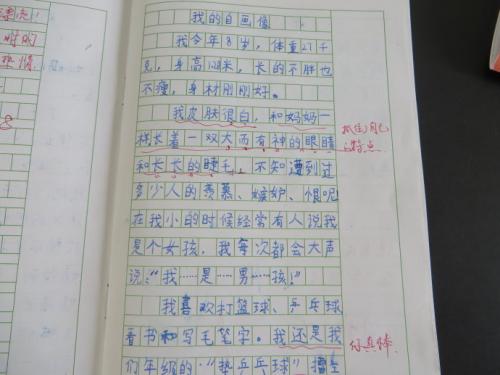 我的自画像
我今年8岁，体重27千
克，身高128米，长的不胖也
不瘦，身材刚刚好。
我皮肤很白，和妈妈一
样长着一双大而有神的眼睛
和长长的睫毛，不知遭到过
多少人的羡慕、嫉妒、恨呢
在我小的时候经常有人说我
是个女孩，我每次都会大声
说：“我……是……男……孩！”
我喜欢打篮球、乒乓球
看书和写毛笔字。我还是我
们年级的“垫乒乓球”擂主
抓住自己
特点
你真棒